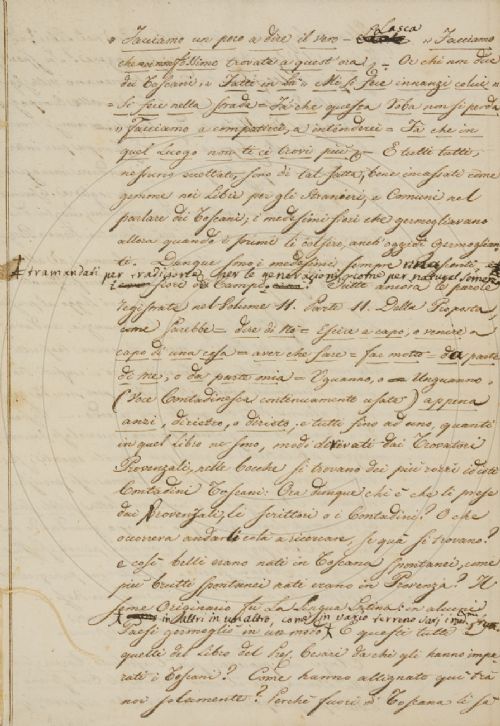 " Facciamo un poco a dire il vero = Lasca " Facciamo
che noi non fossimo trovati a quest'ora, = O chi non dice
dei Toscani, " Fatti in là " Mi si fece innanzi colui "
= Si fece nella strada = Fa che questa Roba non si perda
" Facciamo a compatirci, a intenderci = Fa che in
quel Luogo non ti ci trovi più = E tutti, tutti,
nessuno eccettuato, sono di tal fatta, bene incassati come
gemme nei Libri per gli Stranieri, e Comuni nel
parlare dei Toscani; i medesimi fiori che germogliavano
allora quando i primi li colsero, anch'oggidì germoglian
te. Dunque sono i medesimi, sempre
tramandati per tradizione per le generazioni come per natural
fiori di Campo. Tutte ancora le parole
registrate nel Volume 11. Parte 11. Della Proposta,
come sarebbe = dire di no = Escire a capo, o venire a
capo di una cosa = aver che fare = far motto = da parte
di me, o da parte mia = Uguanno, o Unguanno,
(Voce Contadinesca continuamente usata) appena
anzi, dirietro, o dirieto, e tutte fino ad uno, quanti
in quel Libro ne sono, modi derivati dai Trovatori
Provenzali, nelle bocche si trovano dei più rozzi idioti
Contadini Toscani. Ora dunque chi è che le prese
dai Provenzali, li scrittori o i Contadini? O che
occorreva andarli colà a ricercare, se quà si trovano?
e così belli erano nati in Toscana spontanei, come
più brutti spontanei nati erano in Provenza? Il
seme Originario fu La Lingua Latina: in alcuni
in altri in un altro, come in vario terreno
Paesi germogliò in un modo. E questi tutti
quelli del Libro del Sig. Cesari da chi gli hanno impa
rati i Toscani? Come hanno allignato quì trà
noi solamente? Perchè fuori di Toscana li sà